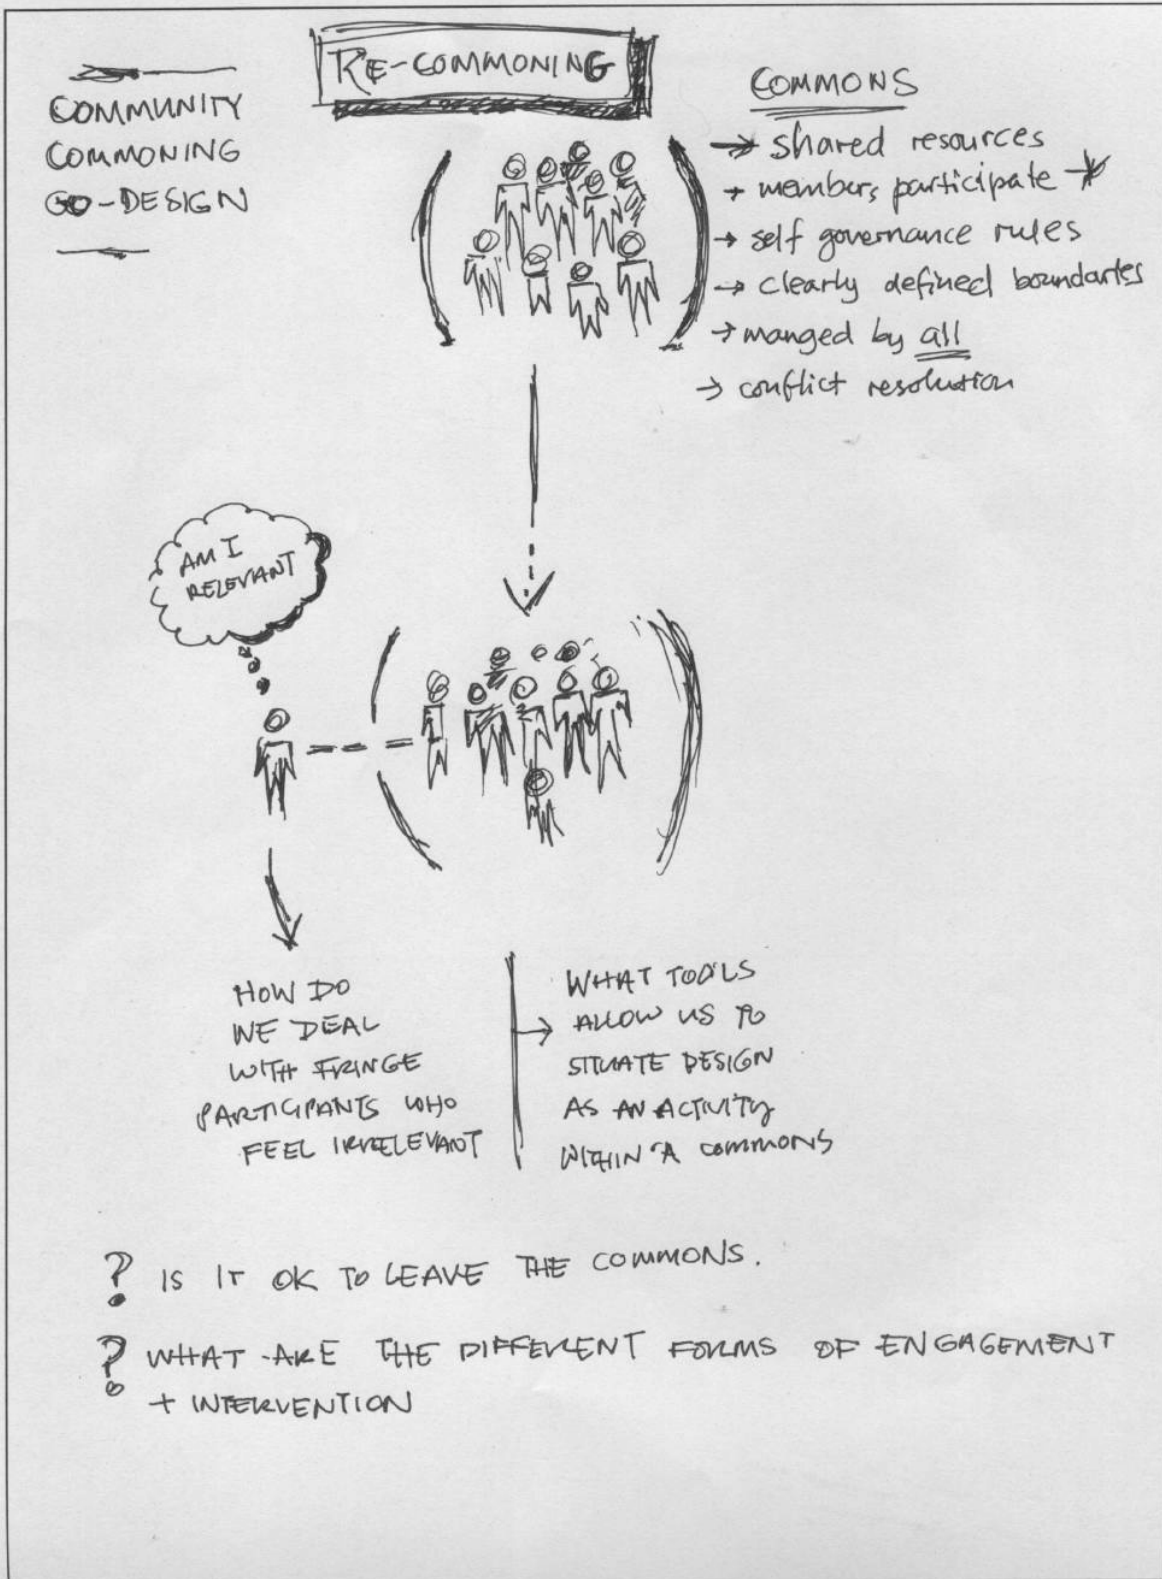 RE-COMMONING
COMMUNITY
COMMONING
CO-DESIGN
COMMONS
→ shared resources
→ members participate
→ self governance rules
→ clearly defined boundaries
→ manged by all
→ conflict resolution
AM I
RELEVANT
HOW DO
WE DEAL
WITH FRINGE
PARTICIPANTS WHO
FEEL IRRELEVANT
WHAT TOOLS
→ ALLOW US TO
SITUATE DESIGN
AS AN ACTIVITY
WITHIN A COMMONS
? IS IT OK TO LEAVE THE COMMONS.
? WHAT ARE THE DIFFERENT FORMS OF ENGAGEMENT
+ INTERVENTION